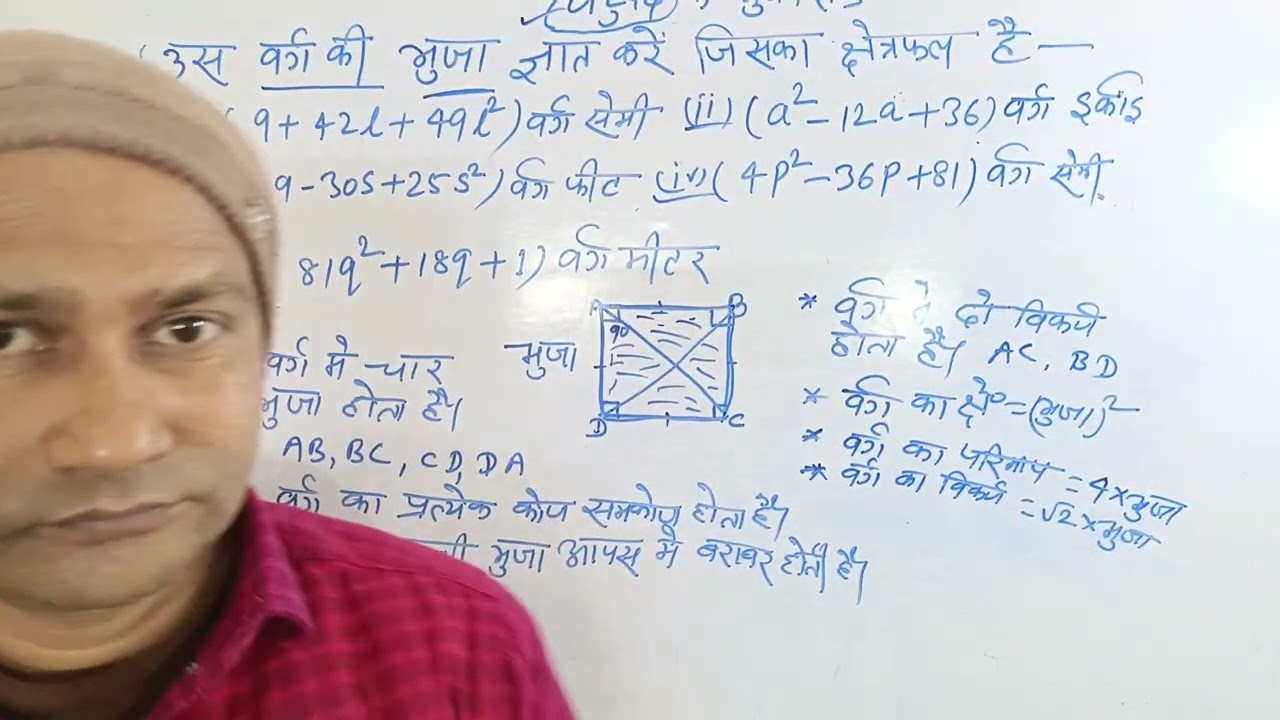 उस वर्ग की भुजा ज्ञात करें जिसका क्षेत्रफल है —
9 + 42l + 49l²) वर्ग सेमी (ii) (a² - 12a + 36) वर्ग इकाई
9 - 30s + 25s²) वर्ग फीट (iv) (4p² - 36p + 81) वर्ग सेमी.
81q² + 18q + 1) वर्ग मीटर
वर्ग मे चार
भुजा होता है।
AB, BC, CD, DA
वर्ग का प्रत्येक कोण समकोण होता है।
भुजा आपस मे बराबर होती है।
भुजा
A B
90
D C
* वर्ग मे दो विकर्ण
होता है। AC, BD
* वर्ग का क्षे० = (भुजा)²
* वर्ग का परिमाप = 4 × भुजा
* वर्ग का विकर्ण = √2 × भुजा